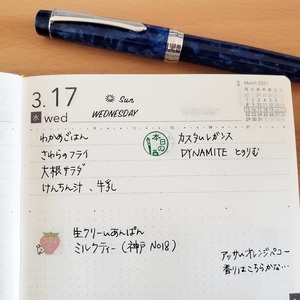 3.17
水 wed
Sun
WEDNESDAY
3 March 2021
わかめごはん
さわらのフライ
大根サラダ
けんちん汁、牛乳
本日の
カスタムレガンス
DYNAMITE とのりむ
生クリームあんぱん
ミルクティー(神戸 No18)
アッサムオレンジペコー
香りはこちらかな…